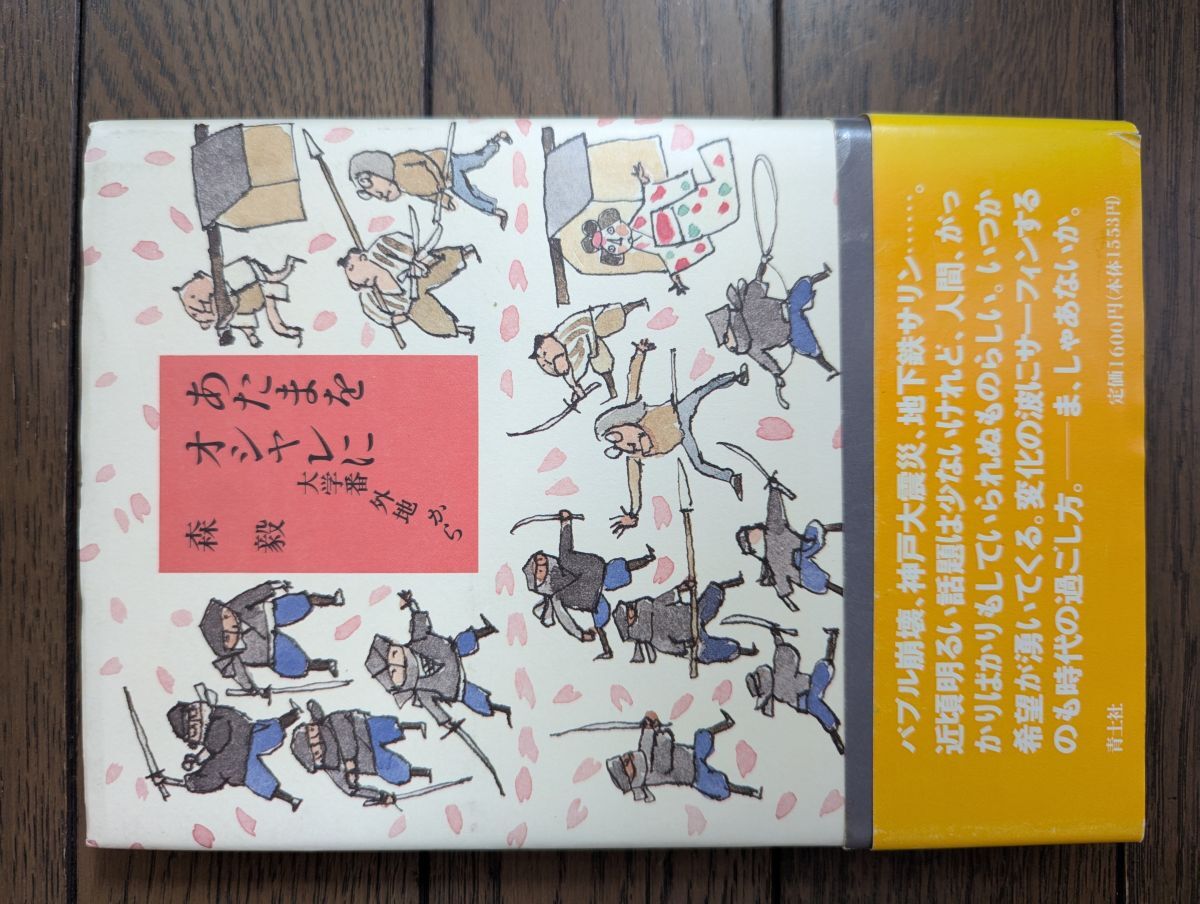 あたまを
オシャレに
大学番外地から
森毅
バブル崩壊、神戸大震災、地下鉄サリン……。
近頃明るい話題は少ないけれど、人間、がっ
かりばかりもしていられぬものらしい。いつか
希望が湧いてくる。変化の波にサーフィンする
のも時代の過ごし方。――ま、しゃあないか。
青土社
定価1600円(本体1553円)